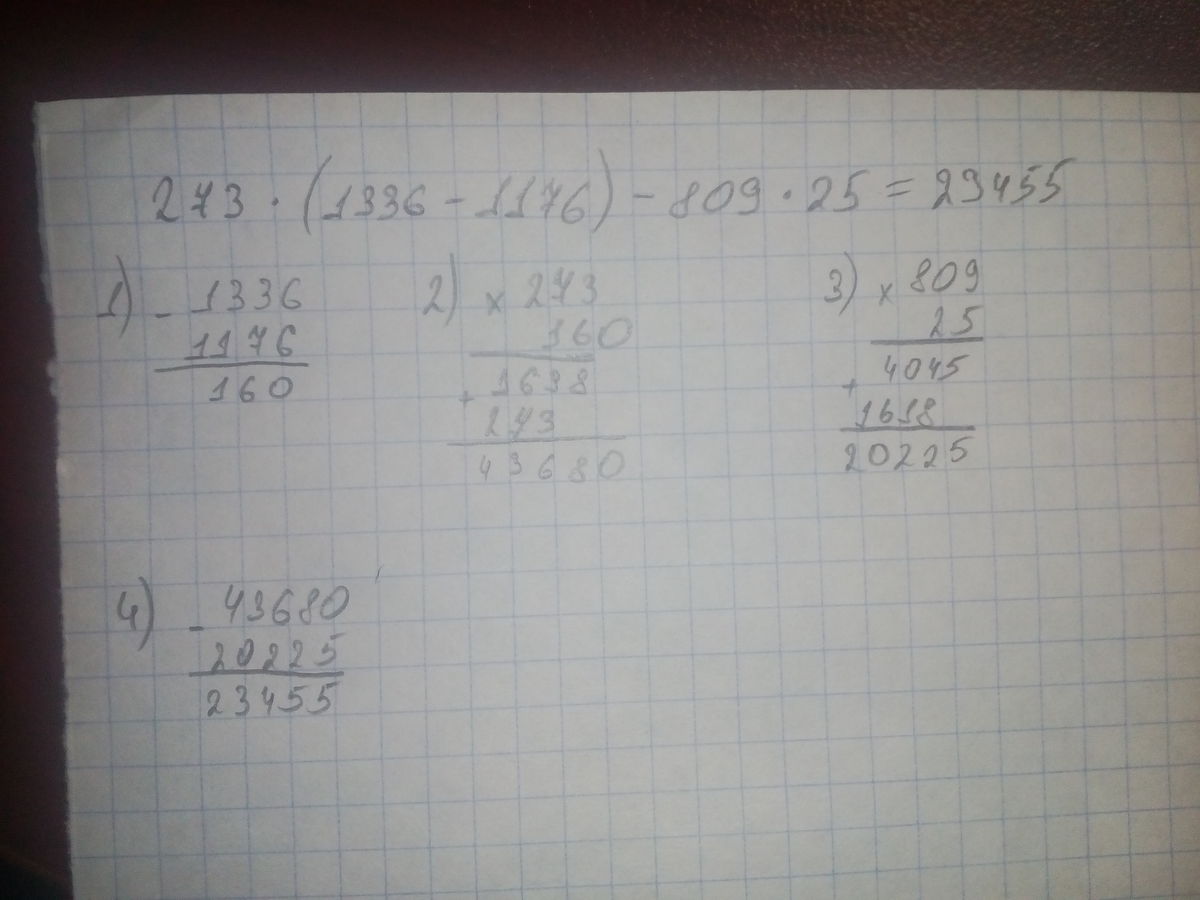 273 · (1336 - 1176) - 809 · 25 = 23455
1) - 1336
1176
160
2) × 273
160
+ 1638
273
43680
3) × 809
25
+ 4045
1618
20225
4) - 43680
20225
23455